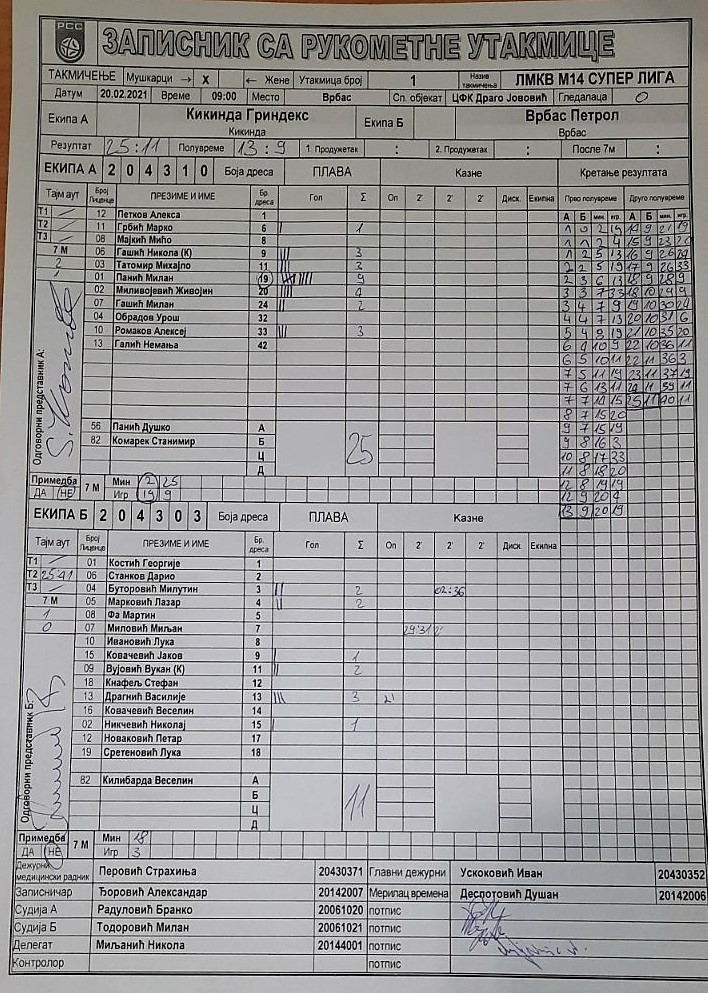 РСС ЗАПИСНИК СА РУКОМЕТНЕ УТАКМИЦЕ
ТАКМИЧЕЊЕ Мушкарци → X ← Жене Утакмица број 1 Назив такмичења ЛМКВ М14 СУПЕР ЛИГА
Датум 20.02.2021 Време 09:00 Место Врбас Сп. објекат ЦФК Драго Јововић Гледалаца 0
Екипа А Кикинда Гриндекс Кикинда Екипа Б Врбас Петрол Врбас
Резултат 25:11 Полувреме 13:9 1. Продужетак : 2. Продужетак : После 7м :
ЕКИПА А 2 0 4 3 1 0 Боја дреса ПЛАВА Казне Кретање резултата
Тајм аут Број Лиценце ПРЕЗИМЕ И ИМЕ Бр. дреса Гол Σ Оп 2' 2' 2' Диск. Екипна Прво полувреме Друго полувреме
А Б мин. игр. А Б мин. игр.
Т1 12 Петков Алекса 1
Т2 11 Грбић Марко 6 1
Т3 08 Мајкић Мићо 8
7 М 06 Гашић Никола (К) 9 3
03 Татомир Михајло 11 3
01 Панић Милан 19 9
02 Миливојевић Живојин 20 4
07 Гашић Милан 24 2
04 Обрадов Урош 32
10 Ромаков Алексеј 33 3
13 Галић Немања 42
56 Панић Душко А
82 Комарек Станимир Б 25
Ц
Д
Одговорни представник А:
1 0 2 19 14 9 21 19
1 1 2 4 15 9 23 20
1 2 5 13 16 9 26 24
2 2 5 19 17 9 26 33
2 3 6 13 18 9 28 9
3 3 7 33 18 10 29 9
3 4 7 9 19 10 30 24
4 4 7 13 20 10 31 6
5 4 9 19 21 10 35 20
6 4 10 9 22 10 36 11
6 5 10 11 22 11 36 3
7 5 11 19 23 11 37 19
7 6 13 11 24 11 39 11
7 7 14 15 25 11 40 11
8 7 15 20
9 7 15 19
9 8 16 3
10 8 17 33
11 8 18 20
12 8 19 19
12 9 20 4
13 9 20 19
Примедба ДА НЕ 7 М Мин 12 25
Игр 19 9
ЕКИПА Б 2 0 4 3 0 3 Боја дреса ПЛАВА Казне
Тајм аут Број Лиценце ПРЕЗИМЕ И ИМЕ Бр. дреса Гол Σ Оп 2' 2' 2' Диск. Екипна
Т1 01 Костић Георгије 1
Т2 25:41 06 Станков Дарио 2
Т3 04 Буторовић Милутин 3 2 02:36
7 М 05 Марковић Лазар 4 2
1 08 Фа Мартин 5
0 07 Миловић Миљан 7 29:31
10 Ивановић Лука 8
15 Ковачевић Јаков 9 1
09 Вујовић Вукан (К) 11 2
18 Кнафељ Стефан 12
13 Драгнић Василије 13 3
16 Ковачевић Веселин 14
02 Никчевић Николај 15 1
12 Новаковић Петар 17
19 Сретеновић Лука 18
82 Килибарда Веселин А
Б 11
Ц
Д
Одговорни представник Б:
Примедба ДА НЕ 7 М Мин 18
Игр 3
Дежурни медицински радник Перовић Страхиња 20430371 Главни дежурни Ускоковић Иван 20430352
Записничар Ђоровић Александар 20142007 Мерилац времена Деспотовић Душан 20142006
Судија А Радуловић Бранко 20061020 потпис
Судија Б Тодоровић Милан 20061021 потпис
Делегат Миљанић Никола 20144001 потпис
Контролор потпис